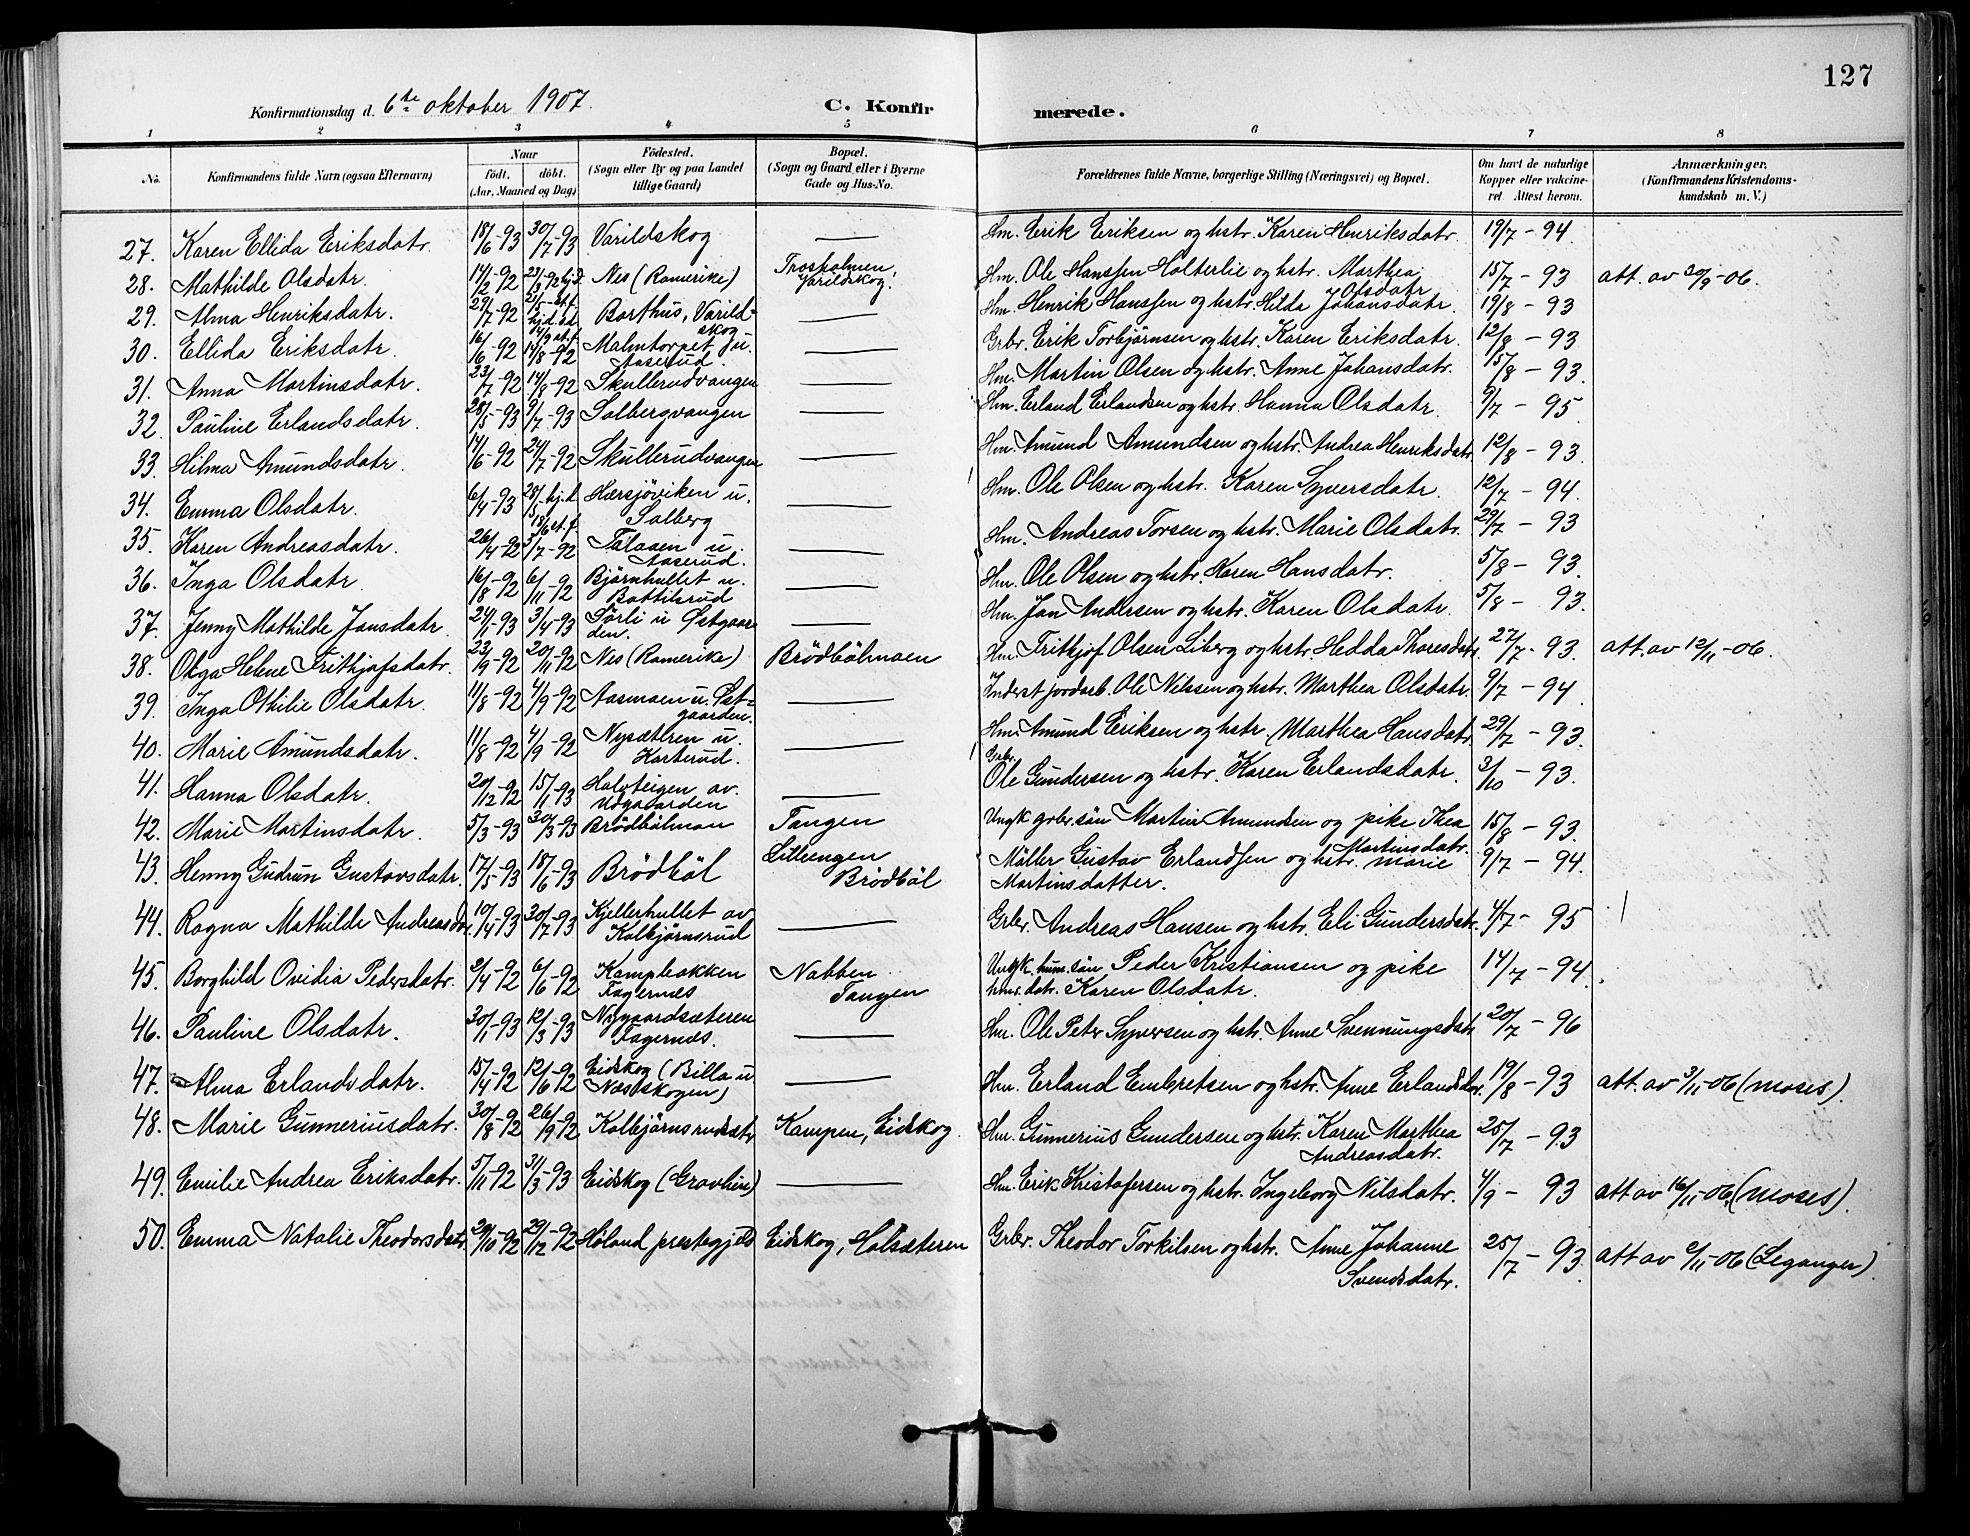 127
Konfirmationsdag d. 6te oktober 1907. C. Konfirmerede.
1 2 3 4 5 6 7 8
No. Konfirmandens fulde Navn (ogsaa Efternavn) Naar født. døbt. (Aar, Maaned og Dag) Födested. (Sogn eller By og paa Landet tillige Gaard) Bopæl. (Sogn og Gaard eller i Byerne Gade og Hus-No. Forældrenes fulde Navne, borgerlige Stilling (Næringsvei) og Bopæl. Om havt de naturlige Kopper eller vakcineret Attest herom. Anmærkninger. (Konfirmandens Kristendomskundskab m. V.)
27. Karen Ellida Eriksdatr. 18/6-93 30/7-93 Varildskog — Hm. Erik Eriksen og hstr. Karen Henriksdatr. 19/7-94.
28. Mathilde Olsdatr. 14/2-92 23/2-92 hjd. 21/5 st.f. Nes (Romerike) Trosholmen, Varildskog. Hm. Ole Hanssen Holterlie og hstr. Marthea Olsdatr 15/7-93 att. av 20/9-06.
29. Alma Henriksdatr. 29/7-92 hjd. Borthus, Varildskog — Hm. Henrik Hanssen og hstr. Hilda Johansdatr. 19/8-93
30. Ellida Eriksdatr. 16/6-92 14/8-92 Malmtorpet u. Aaserud. — Grbr. Erik Torbjørnsen og hstr. Karen Eriksdatr. 12/8-93
31. Anna Martinsdatr. 23/7-92 14/8-92 Skullerudvangen — Hm. Martin Olsen og hstr. Anne Johansdatr. 15/8-93.
32. Pauline Erlandsdatr. 28/5-93 9/7-93 Solbergvangen — Hm. Erland Erlandsen og hstr. Hanna Olsdatr. 9/7-95.
33. Hilma Amundsdatr. 14/6-92 24/7-92 Skullerudvangen — Hm. Amund Amundsen og hstr. Andrea Henriksdatr 12/8-93.
34. Emma Olsdatr. 6/4-93 28/5 hj.d. 18/6 st.f. Hærsjöviken u. Solberg — Hm. Ole Olsen og hstr. Karen Syversdatr. 12/7-94.
35. Karen Andreasdatr. 26/4-92 3/7-92 Talaaen u. Aaserud. — Hm. Andreas Torsen og hstr. Marie Olsdatr. 29/7-93
36. Inga Olsdatr. 16/8-92 6/11-92 Bjørnhullet u. Bottilsrud — Hm. Ole Olsen og hstr. Karen Hansdatr. 5/8-93.
37. Jenny Mathilde Jansdatr. 24/1-93 3/4-93 Sörli u Østgaarden. — Hm. Jan Andersen og hstr. Karen Olsdatr. 5/8-93.
38. Olga Helene Frithjofsdatr. 23/9-92 20/11-92 Nes (Romerike) Brödbölmoen Hm. Fritkjof Olsen Liberg og hstr. Hedda Thoresdatr. 27/7-93. att. av 12/11-06.
39. Inga Othilie Olsdatr. 11/8-92 4/9-92 Aasmoen u. Østgaarden. — Inderst jordarb. Ole Nilssen og hstr. Marthea Olsdatr. 9/7-94.
40. Marie Amundsdatr. 11/8-92 4/9-92 Nysætren u. Karterud. — Hm. Amund Eriksen og hstr. Marthea Hansdatr. 29/7-93.
41. Hanna Olsdatr. 20/12-92 15/1-93 Halvteigen av Udgaarden — Grbr. Ole Gundersen og hstr. Karen Erlandsdatr. 3/10-93.
42. Marie Martinsdatr. 5/3-93 30/3-93 Brödbölmoen Tangen Ungk grbr.sön Martin Amundsen og pike Thea Martinsdatr. 15/8-93.
43. Henny Gudrun Gustavsdatr. 17/5-93 18/6-93 Brödböl Lilleengen Brödböl Möller Gustav Erlandsen og hstr. Marie Martinsdatter. 9/7-94.
44. Ragna Mathilde Andreasdtr. 10/4-93 30/7-93 Kjellerhullet av Kolbjörnsrud — Grbr. Andreas Hansen og hstr. Eli Gundersdatr. 4/7-95
45. Borghild Ovidia Pedersdatr. 2/4-92 6/6-92 Kampbakken Fagernæs Nabben Tangen Ungk. hum. sön Peder Kristiansen og pike hmr. datr. Karen Olsdatr. 14/7-94.
46. Pauline Olsdatr. 30/1-93 12/3-93 Nygaardsæteren Fagernæs. — Hm. Ole Peter Syversen og hstr. Anne Svenningsdatr 20/7-96
47. Alma Erlandsdatr. 15/4-92 12/6-92 Eidskog (Billa u Næstskogen) — Hm. Erland Embretsen og hstr. Anne Erlandsdtr. 19/8-93 att. av 3/11-06 (Moses).
48. Marie Gunneriusdatr. 30/8-92 26/9-92 Kolbjörnsrudsætr Kampen, Eidskog. Hm. Gunnerius Gundersen og hstr. Karen Marthea Andreasdatr. 25/7-93
49. Emilie Andrea Eriksdatr. 5/11-92 3/3-93 Eidskog (Gravlien) — Hm. Erik Kristofersen og hstr. Ingeborg Nilsdatr. 4/9-93 att av 16/11-06 (Moses).
50. Emma Natalie Theodorsdatr. 20/10-92 29/12-92 Høland prestegjeld Eidskog, Holsæteren Grbr. Theodor Torkilsen og hstr. Anne Johanne Svendsdatr. 25/7-93. att av /11-06 (Leganger).